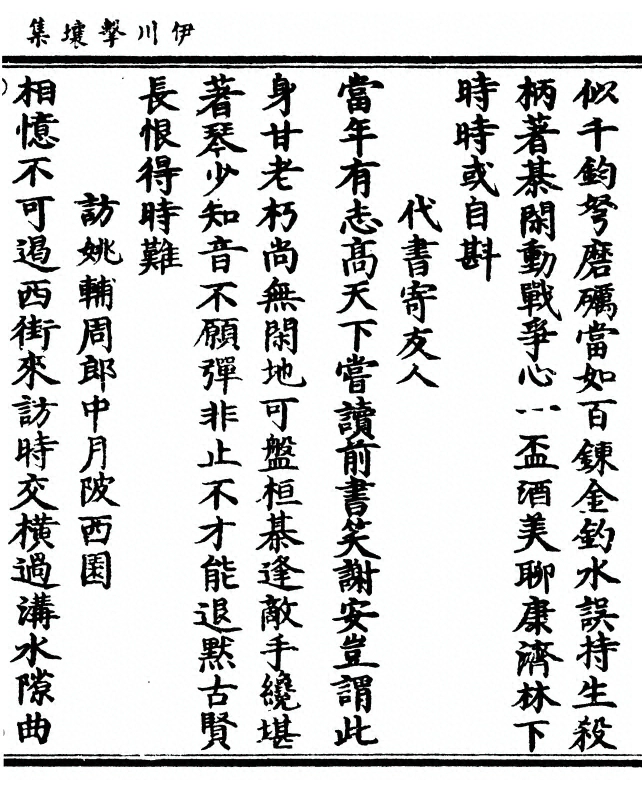 伊川擊壤集
似千鈞弩磨礪當如百鍊金釣水誤持生殺
柄著棊閑動戰爭心一盃酒美聊康濟林下
時時或自斟
代書寄友人
當年有志高天下嘗讀前書笑謝安豈謂此
身甘老朽尚無閑地可盤桓棊逢敵手纔堪
著琴少知音不願彈非止不才能退默古賢
長恨得時難
訪姚輔周郎中月陂西園
相憶不可遏西街來訪時交橫過溝水隙曲